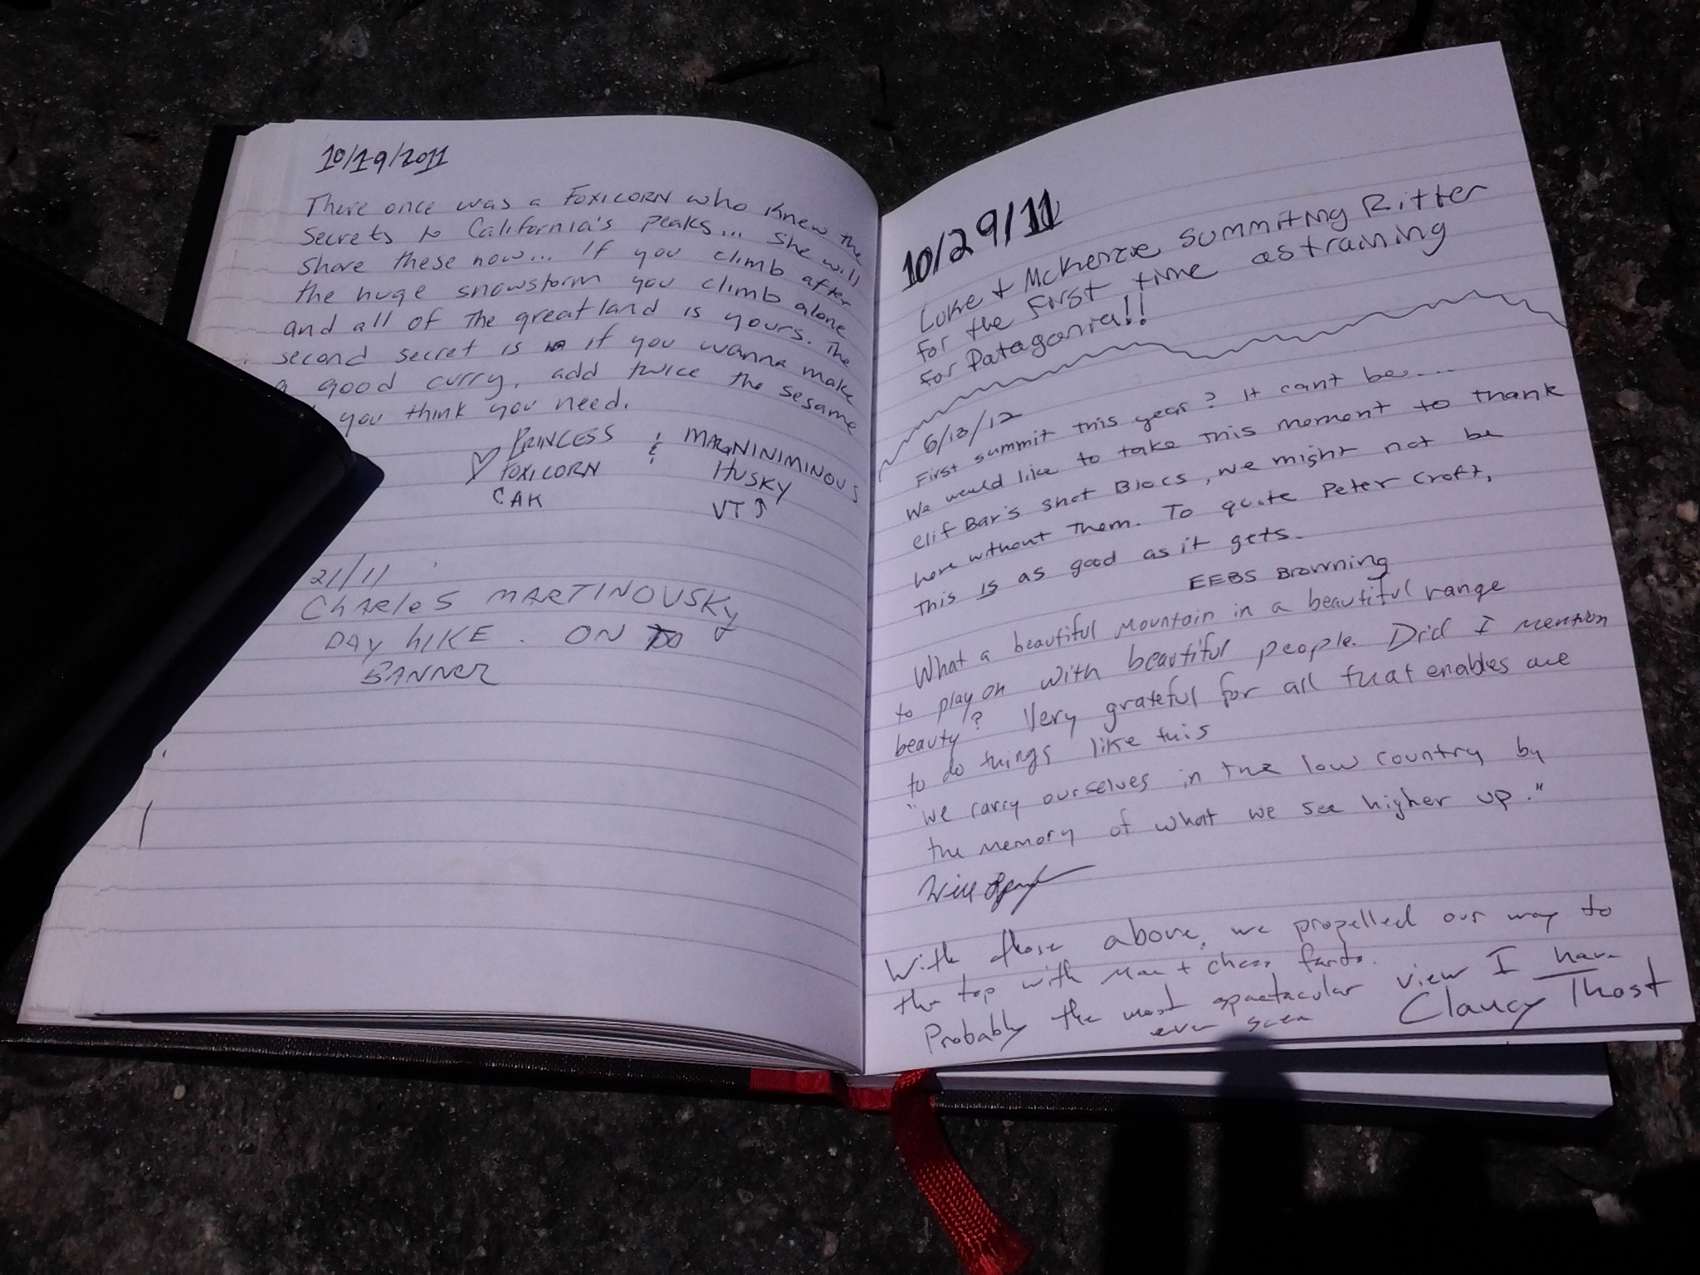 10/19/2011
There once was a FOXICORN who knew the
secrets to California's peaks... She will
share these now... If you climb after
the huge snowstorm you climb alone
and all of the great land is yours. The
second secret is if you wanna make
a good curry, add twice the sesame
you think you need.
♡ PRINCESS & MAGNINIMINOUS
FOXICORN HUSKY
CAK VT↑
21/11
CHARLES MARTINOUSKY
DAY HIKE. ON TO
BANNER
10/29/11
Luke + McKenzie summiting Ritter
for the first time as training
for Patagonia!!
6/18/12
First summit this year? It cant be....
We would like to take this moment to thank
Clif Bar's Shot Blocs, we might not be
here without them. To quote Peter Croft,
This is as good as it gets.
EEBS Browning
What a beautiful mountain in a beautiful range
to play on with beautiful people. Did I mention
beauty? Very grateful for all that enables me
to do things like this
"We carry ourselves in the low country by
the memory of what we see higher up."
Will
With those above, we propelled our way to
the top with mac + cheese farts.
Probably the most spectacular view I have
ever seen Clancy Thost